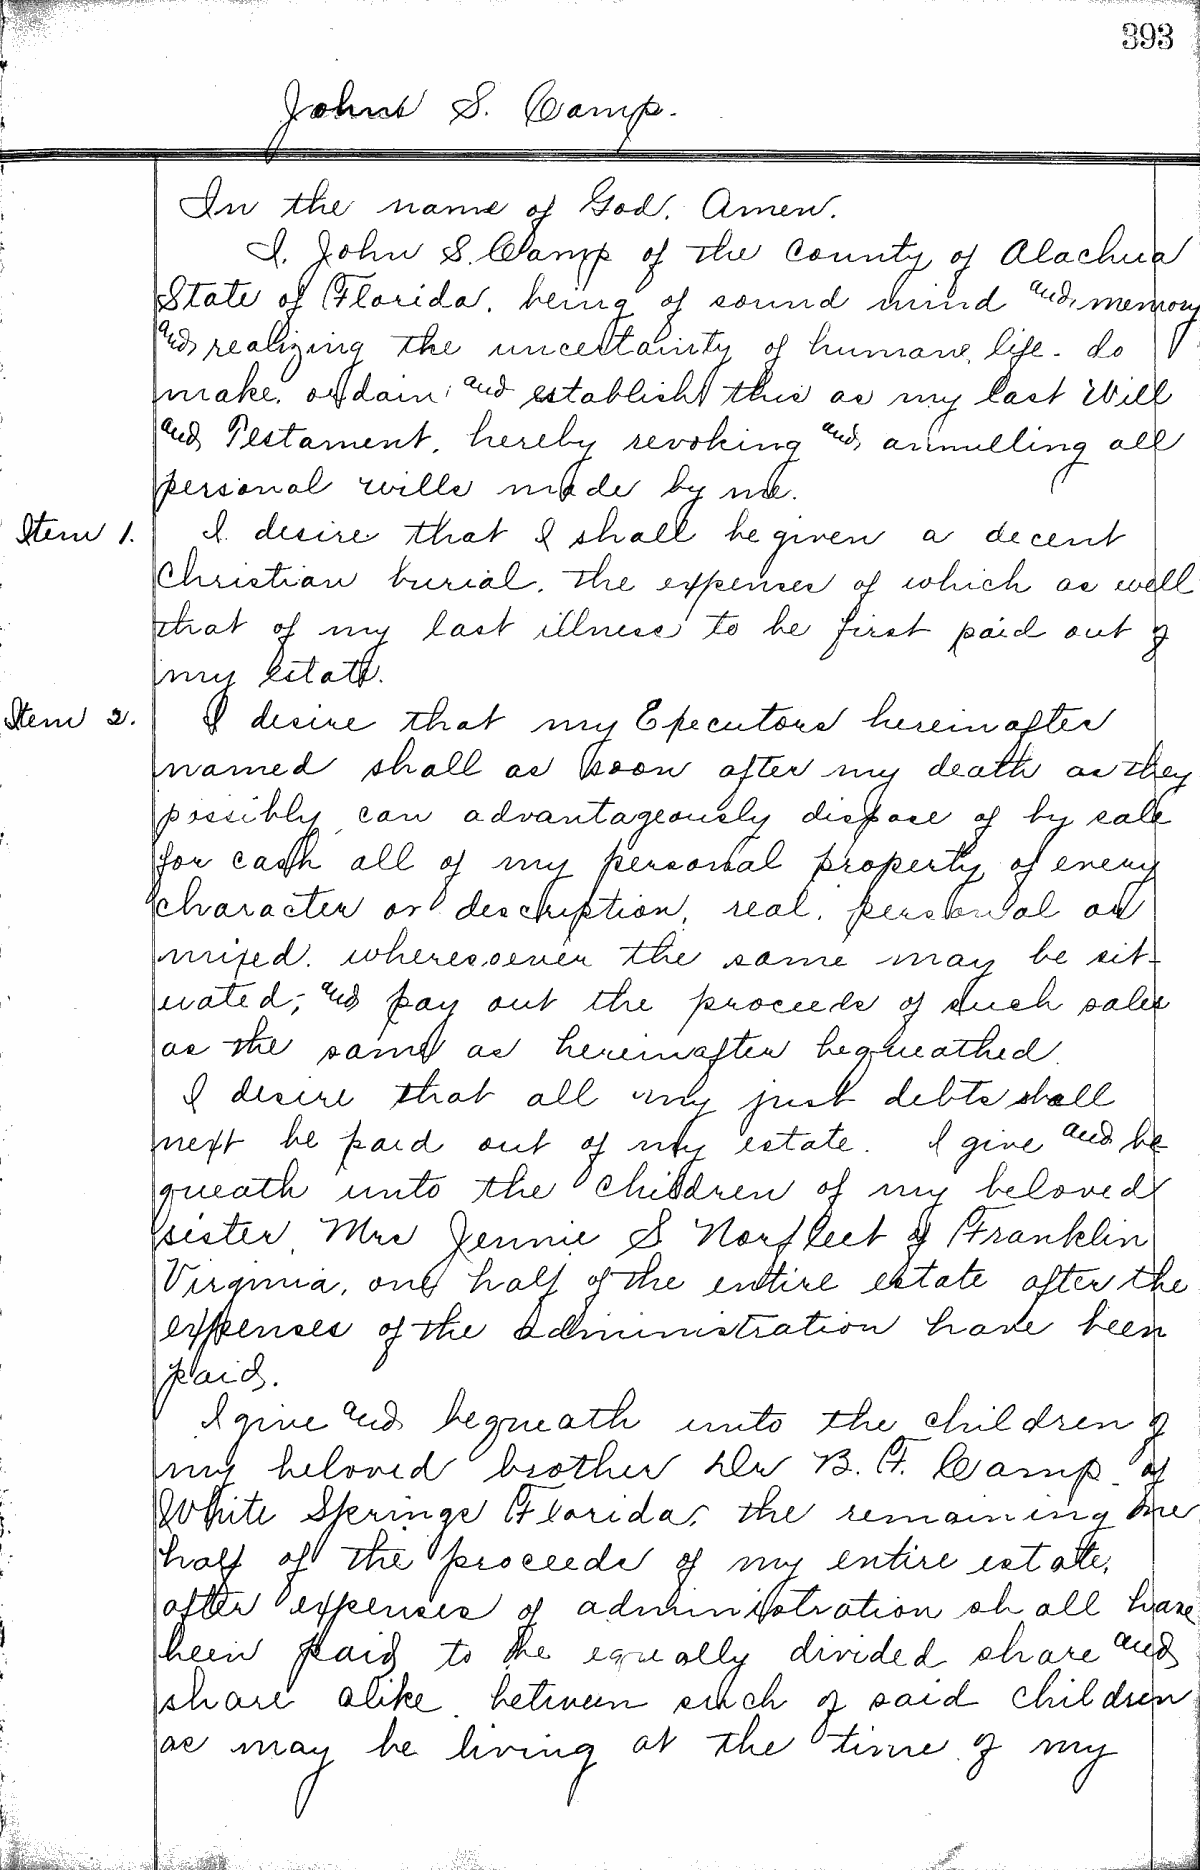 393
John S. Camp.
In the name of God. Amen.
I. John S. Camp of the County of Alachua
State of Florida. being of sound mind and memory
and realizing the uncertainty of human life. do
make. ordain and establish this as my last Will
and Testament. hereby revoking and annulling all
personal wills made by me.
Item 1. I desire that I shall be given a decent
Christian burial. the expenses of which as well
that of my last illness to be first paid out of
my estate.
Item 2. I desire that my Executors hereinafter
named shall as soon after my death as they
possibly can advantageously dispose of by sale
for cash all of my personal property of every
character or description, real. personal or
mixed. wheresoever the same may be sit-
uated; and pay out the proceeds of such sales
as the same as hereinafter bequeathed.
I desire that all my just debts shall
next be paid out of my estate. I give and be
queath unto the children of my beloved
sister Mrs Jennie S Norfleet of Franklin
Virginia, one half of the entire estate after the
expenses of the administration have been
paid.
I give and bequeath unto the children of
my beloved brother Dr B. F. Camp of
White Springs Florida, the remaining one
half of the proceeds of my entire estate,
after expenses of administration shall have
been paid to be equally divided share and
share alike between such of said children
as may be living at the time of my